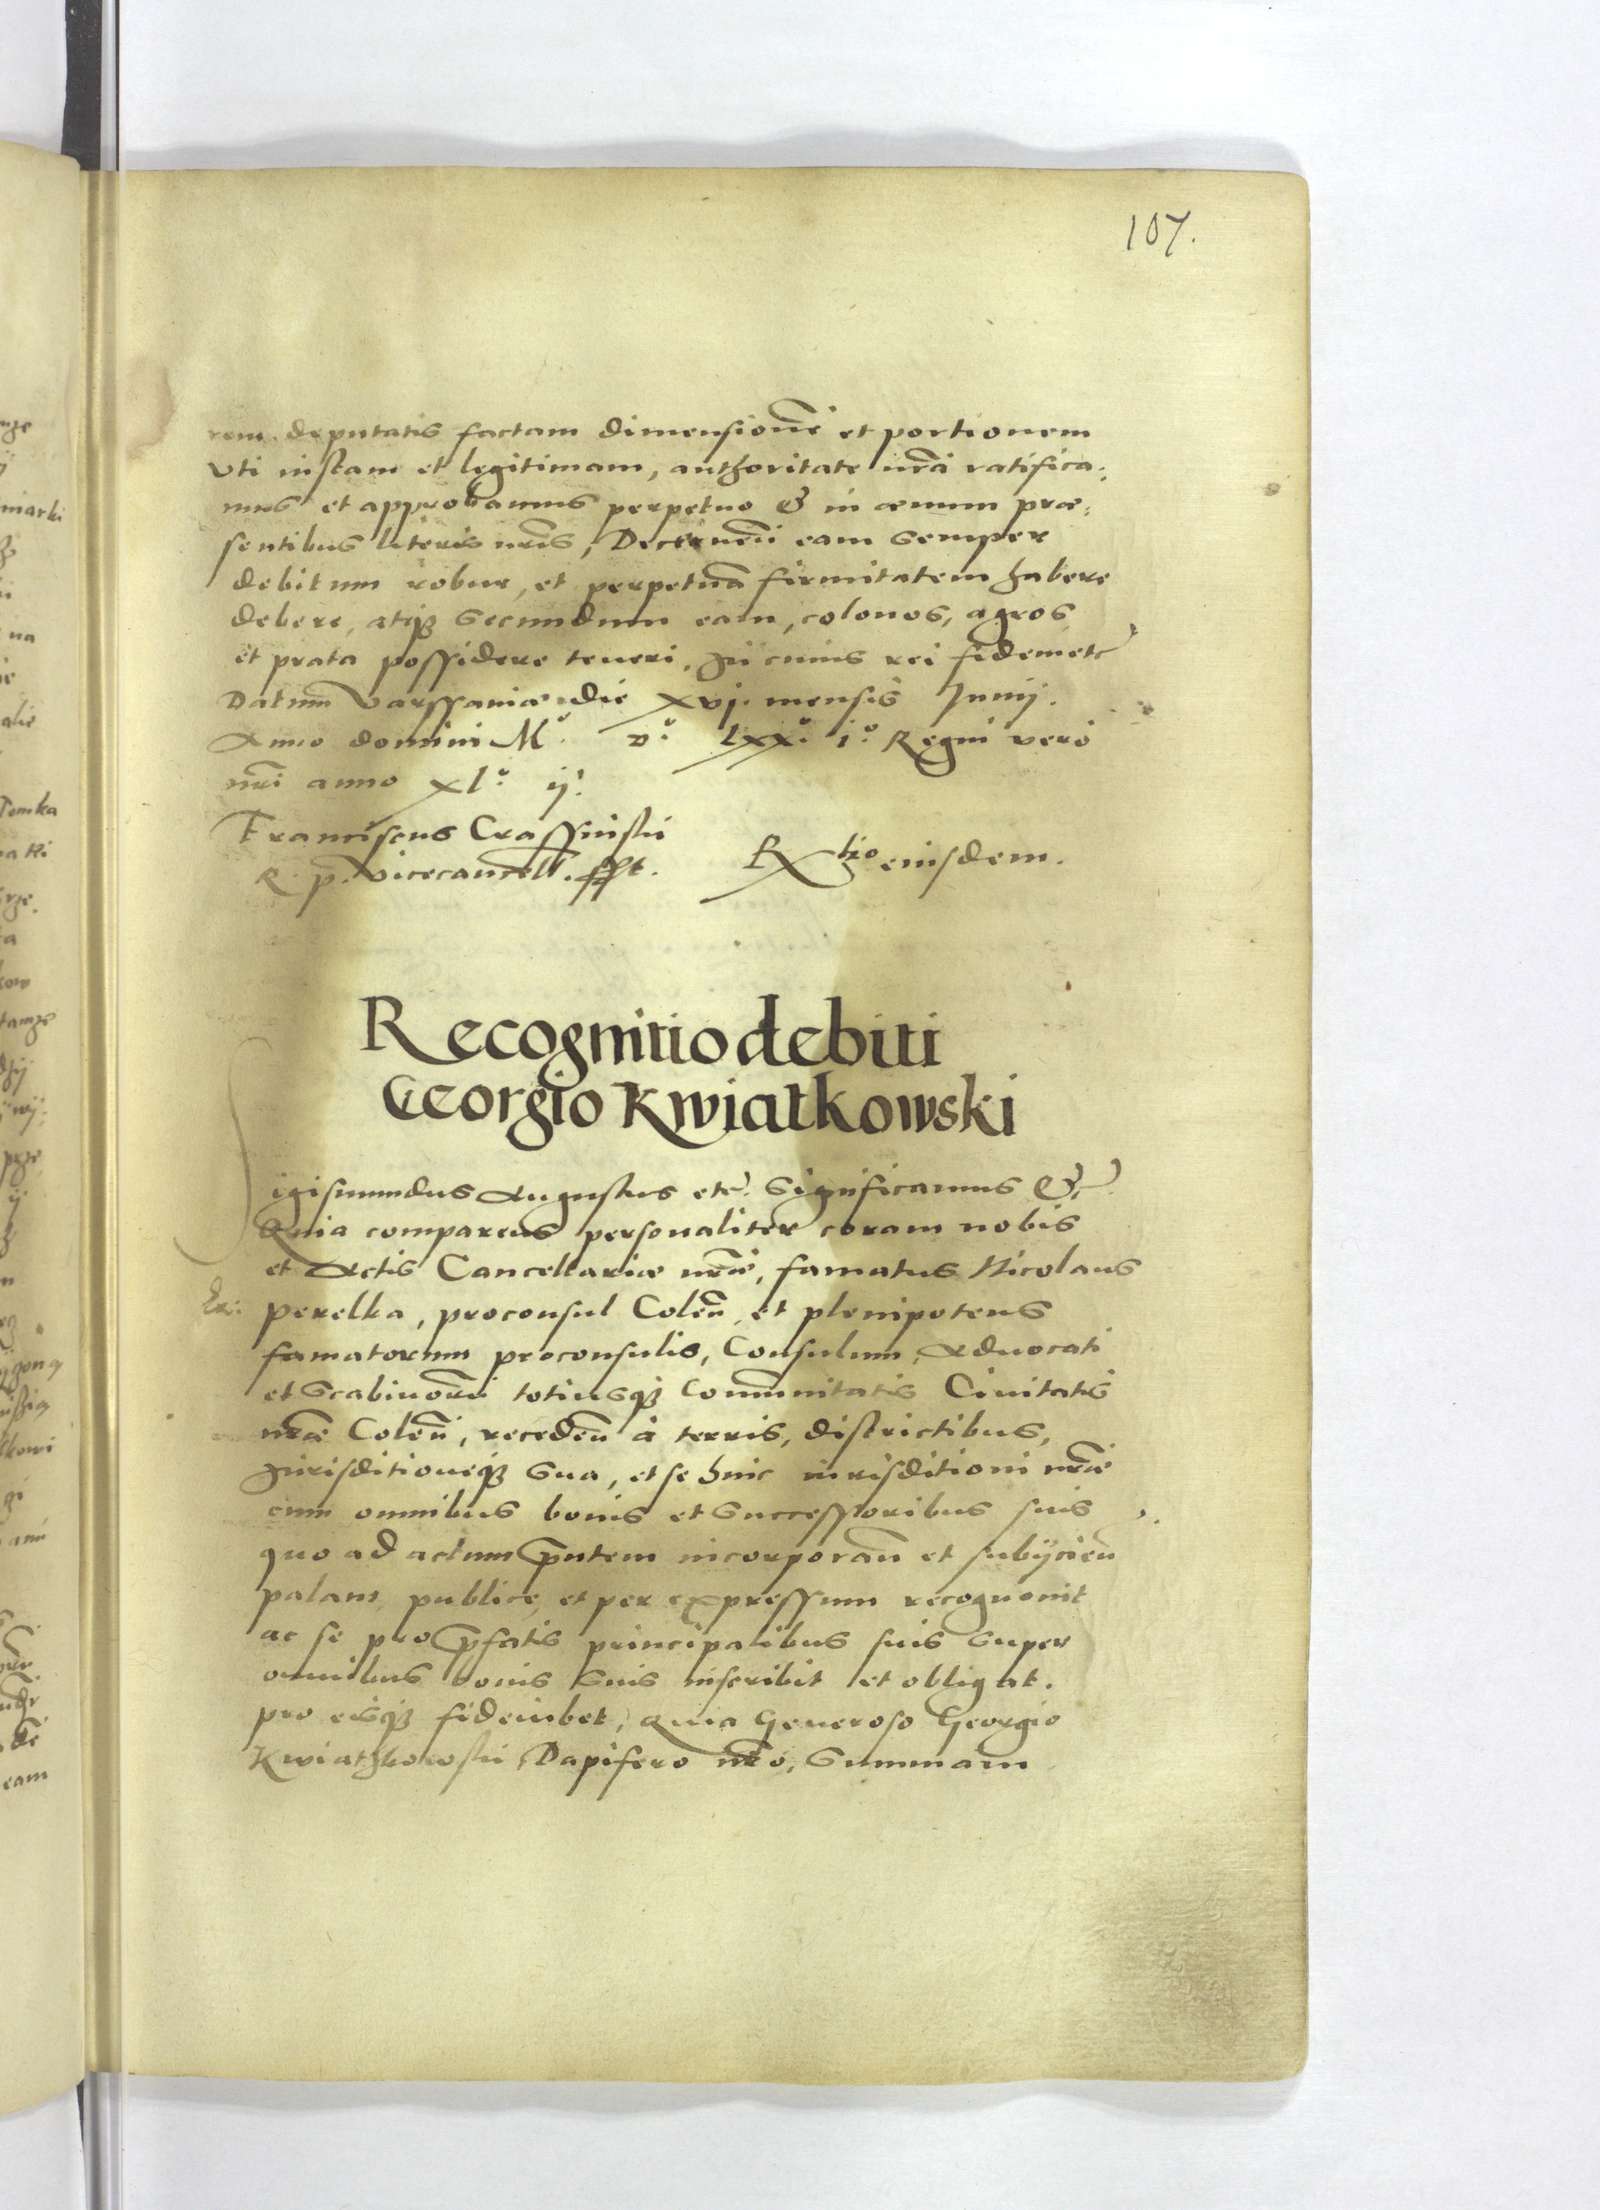 107.
rem deputatis factam dimensionẽ et portionem
vti iustam et legitimam, authoritate nr̃a ratifica:
mus et approbamus perpetuo & in æuum præ:
sentibus literis nr̃is, Decernẽn eam semper
debitum robur, et perpetuã firmitatem habere
debere, atq3 secundum eam, colonos, agros
et prata possidere teneri. In cuius rei fidem etc
Datum Varssauiæ die xvj. mensis Junij.
Anno domini Mo. Do. Lxxo. io. Regni vero
nr̃i anno xlo. ijo.
Franciscus Crassinski
R. p. vicecancell. sspt.
Rtio eiusdem.
Recognitio debiti
Georgio Kwiatkowski
Sigismundus Augustus etc. Significamus &c.
Quia comparens personaliter coram nobis
et Actis Cancellariæ nr̃æ, famatus Nicolaus
Perelka, proconsul Coleñ, et plenipotens
famatorum proconsulis, Consulum, Aduocati
et Scabinorũ totiusq3 Com̃unitatis Ciuitatis
nr̃æ Coleñ, recedeñ à terris, districtibus,
Jurisditioneq3 sua, et se huic iurisditioni nr̃æ
cum omnibus bonis et successoribus suis
quo ad actum p̃ntem incorporañ et subijcieñ
palam, publice, et per expressum recognouit
ac se pro p̃fatis principalibus suis super
omnibus bonis suis inscribit et obligat.
pro eisq3 fideiubet, Quia Generoso Georgio
Kwiathkowski, Dapifero nr̃o, Summam